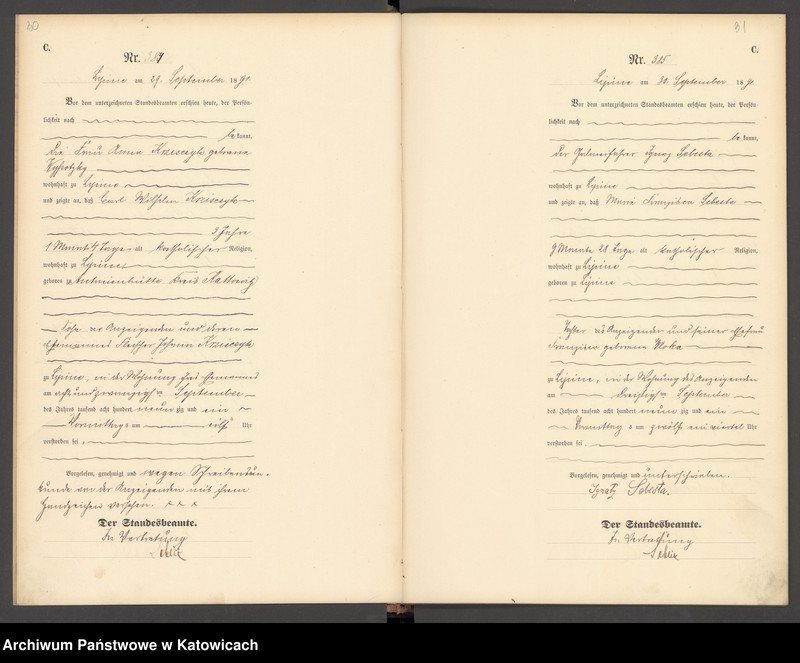 80
C.
Nr.
Lipine am 29. September 1891
Vor dem unterzeichneten Standesbeamten erschien heute, der Persön-
lichkeit nach
bekannt,
die Frau Anna geborene
wohnhaft zu Lipine
und zeigte an, daß Carl Wilhelm
3 Jahre
1 Monat Tage alt katholischer Religion,
wohnhaft zu Lipine
geboren zu Antonienhütte Kreis Kattowitz
Sohn der Anzeigenden und deren
Ehemannes Johann
zu Lipine, in der Wohnung ihres Ehemannes
am acht und zwanzigsten September
des Jahres tausend acht hundert neunzig und ein
Vormittags um elf Uhr
verstorben sei.
Vorgelesen, genehmigt und wegen Schreibensun-
kunde von der Anzeigenden mit ihrem
Handzeichen versehen. x x x
Der Standesbeamte.
In Vertretung
81
C.
Nr. 315
Lipine am 30. September 1891
Vor dem unterzeichneten Standesbeamten erschien heute, der Persön-
lichkeit nach
bekannt,
der Ignaz Sebesta
wohnhaft zu Lipine
und zeigte an, daß Maria Franziska Sebesta
9 Monate 28 Tage alt katholischer Religion,
wohnhaft zu Lipine
geboren zu Lipine
Tochter des Anzeigenden und seiner Ehefrau
Franziska geborene
zu Lipine, in der Wohnung des Anzeigenden
am dreißigsten September
des Jahres tausend acht hundert neunzig und ein
Vormittags um zwölf ein viertel Uhr
verstorben sei.
Vorgelesen, genehmigt und unterschrieben.
Ignatz Sebesta.
Der Standesbeamte.
In Vertretung
Archiwum Państwowe w Katowicach